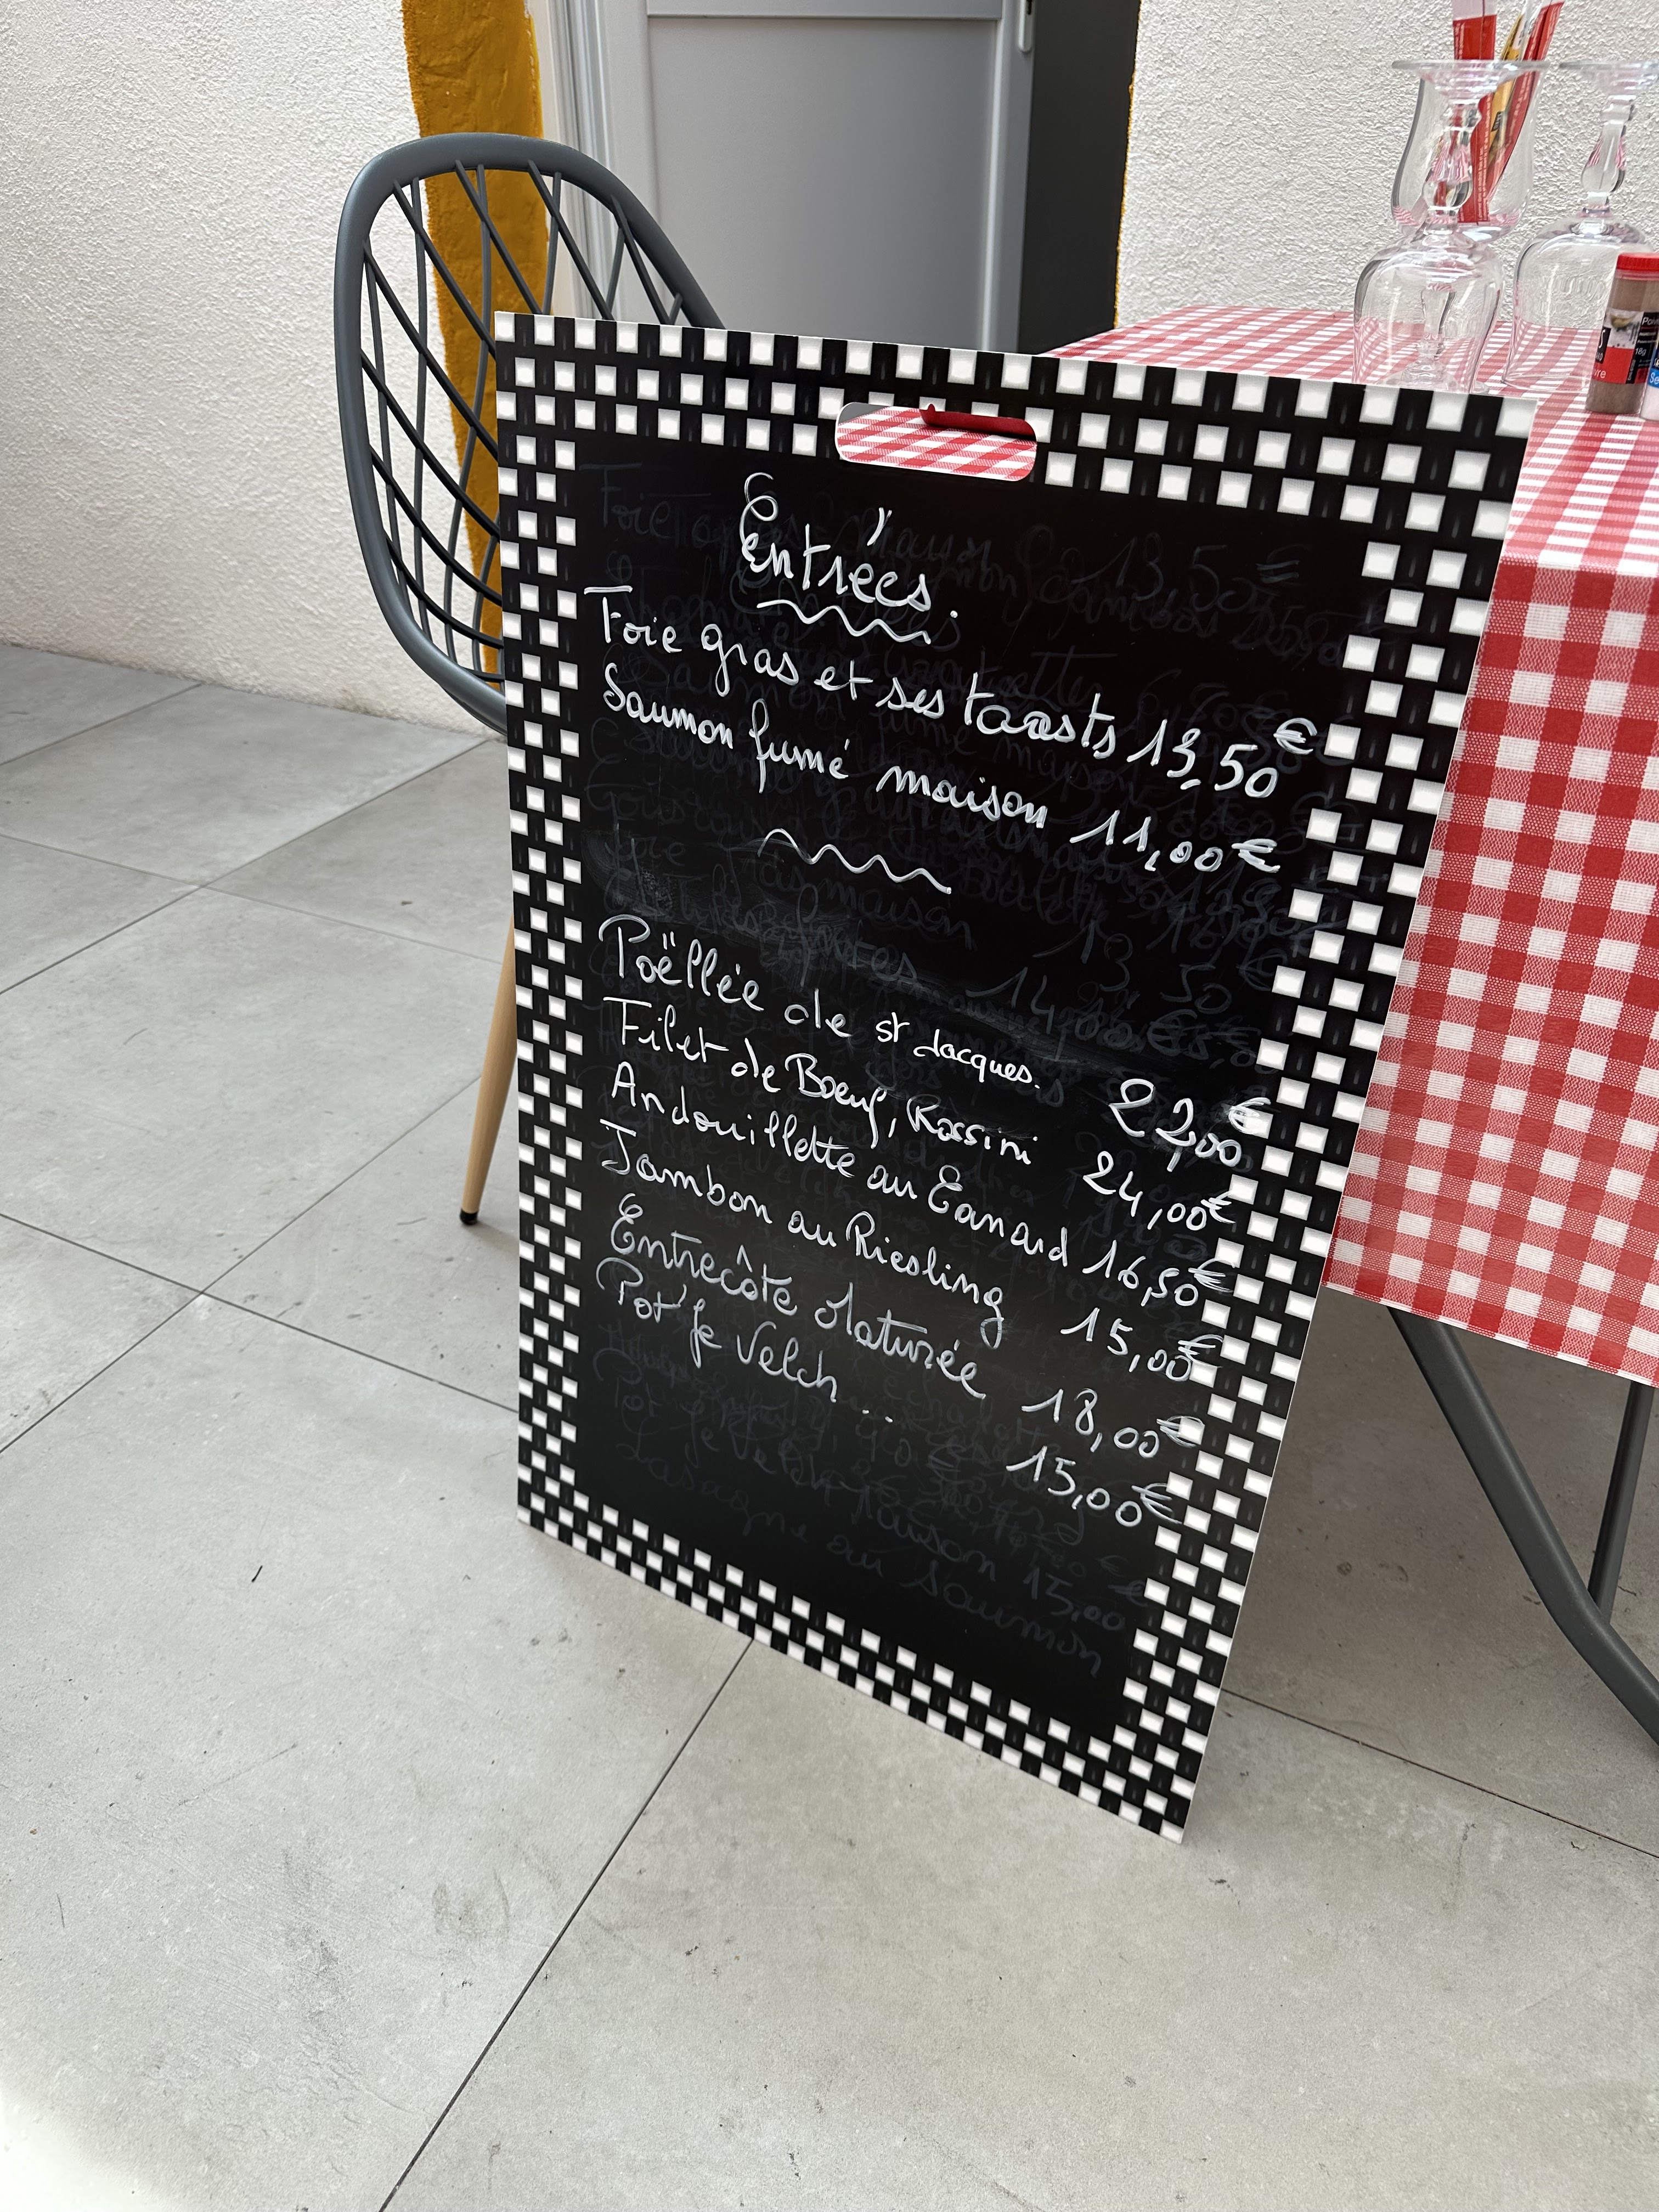 Entrées.
Foie gras et ses toasts 13,50€
Saumon fumé maison 11,00€
Poëllée de st Jacques. 22,00€
Filet de Boeuf, Rossini 24,00€
Andouillette au Canard 16,50€
Jambon au Riesling 15,00€
Entrecôte Maturée 18,00€
Pot' Je Velch... 15,00€